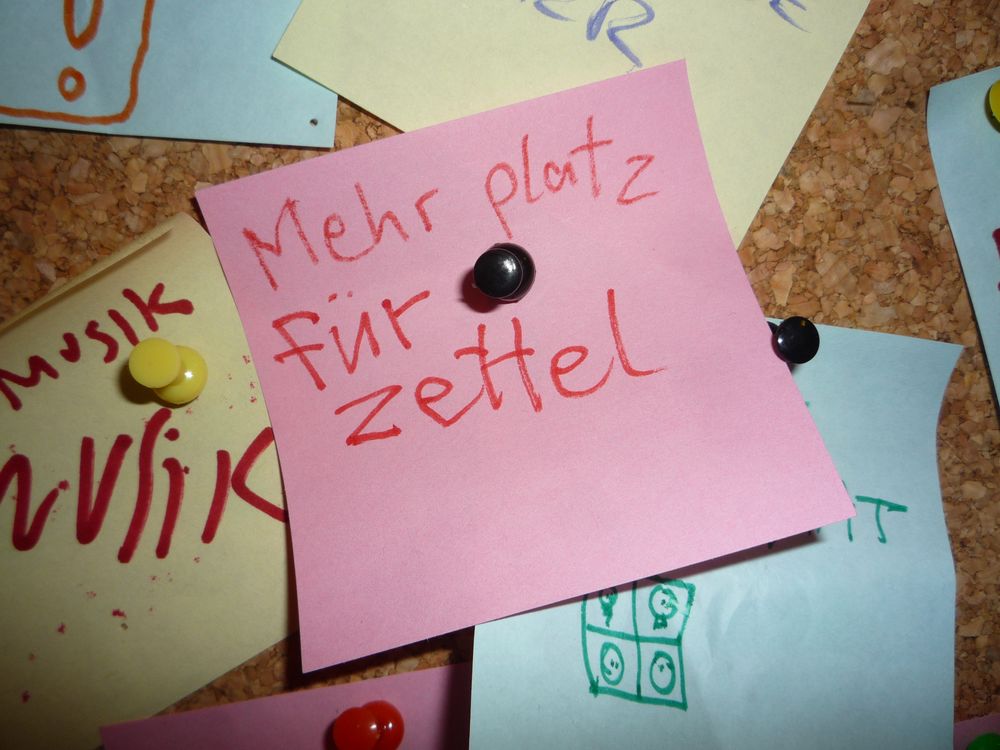 Mehr platz
für
zettel
Musik
MUSiK